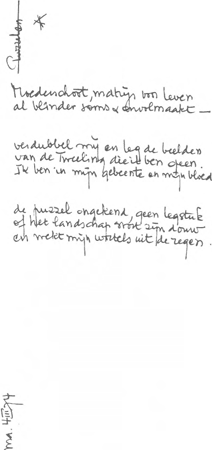 Puzzelen
Moederschoot, matrijs van leven
al blinder soms & onvolmaakt —
verdubbel mij en leg de beelden
van de Tweeling die ik ben open.
Ik ben in mijn gebeente en mijn bloed
de puzzel ongekend, geen legstuk
of het landschap mist zijn douw
en wekt mijn wortels uit de regen.
ma. 4 III 74